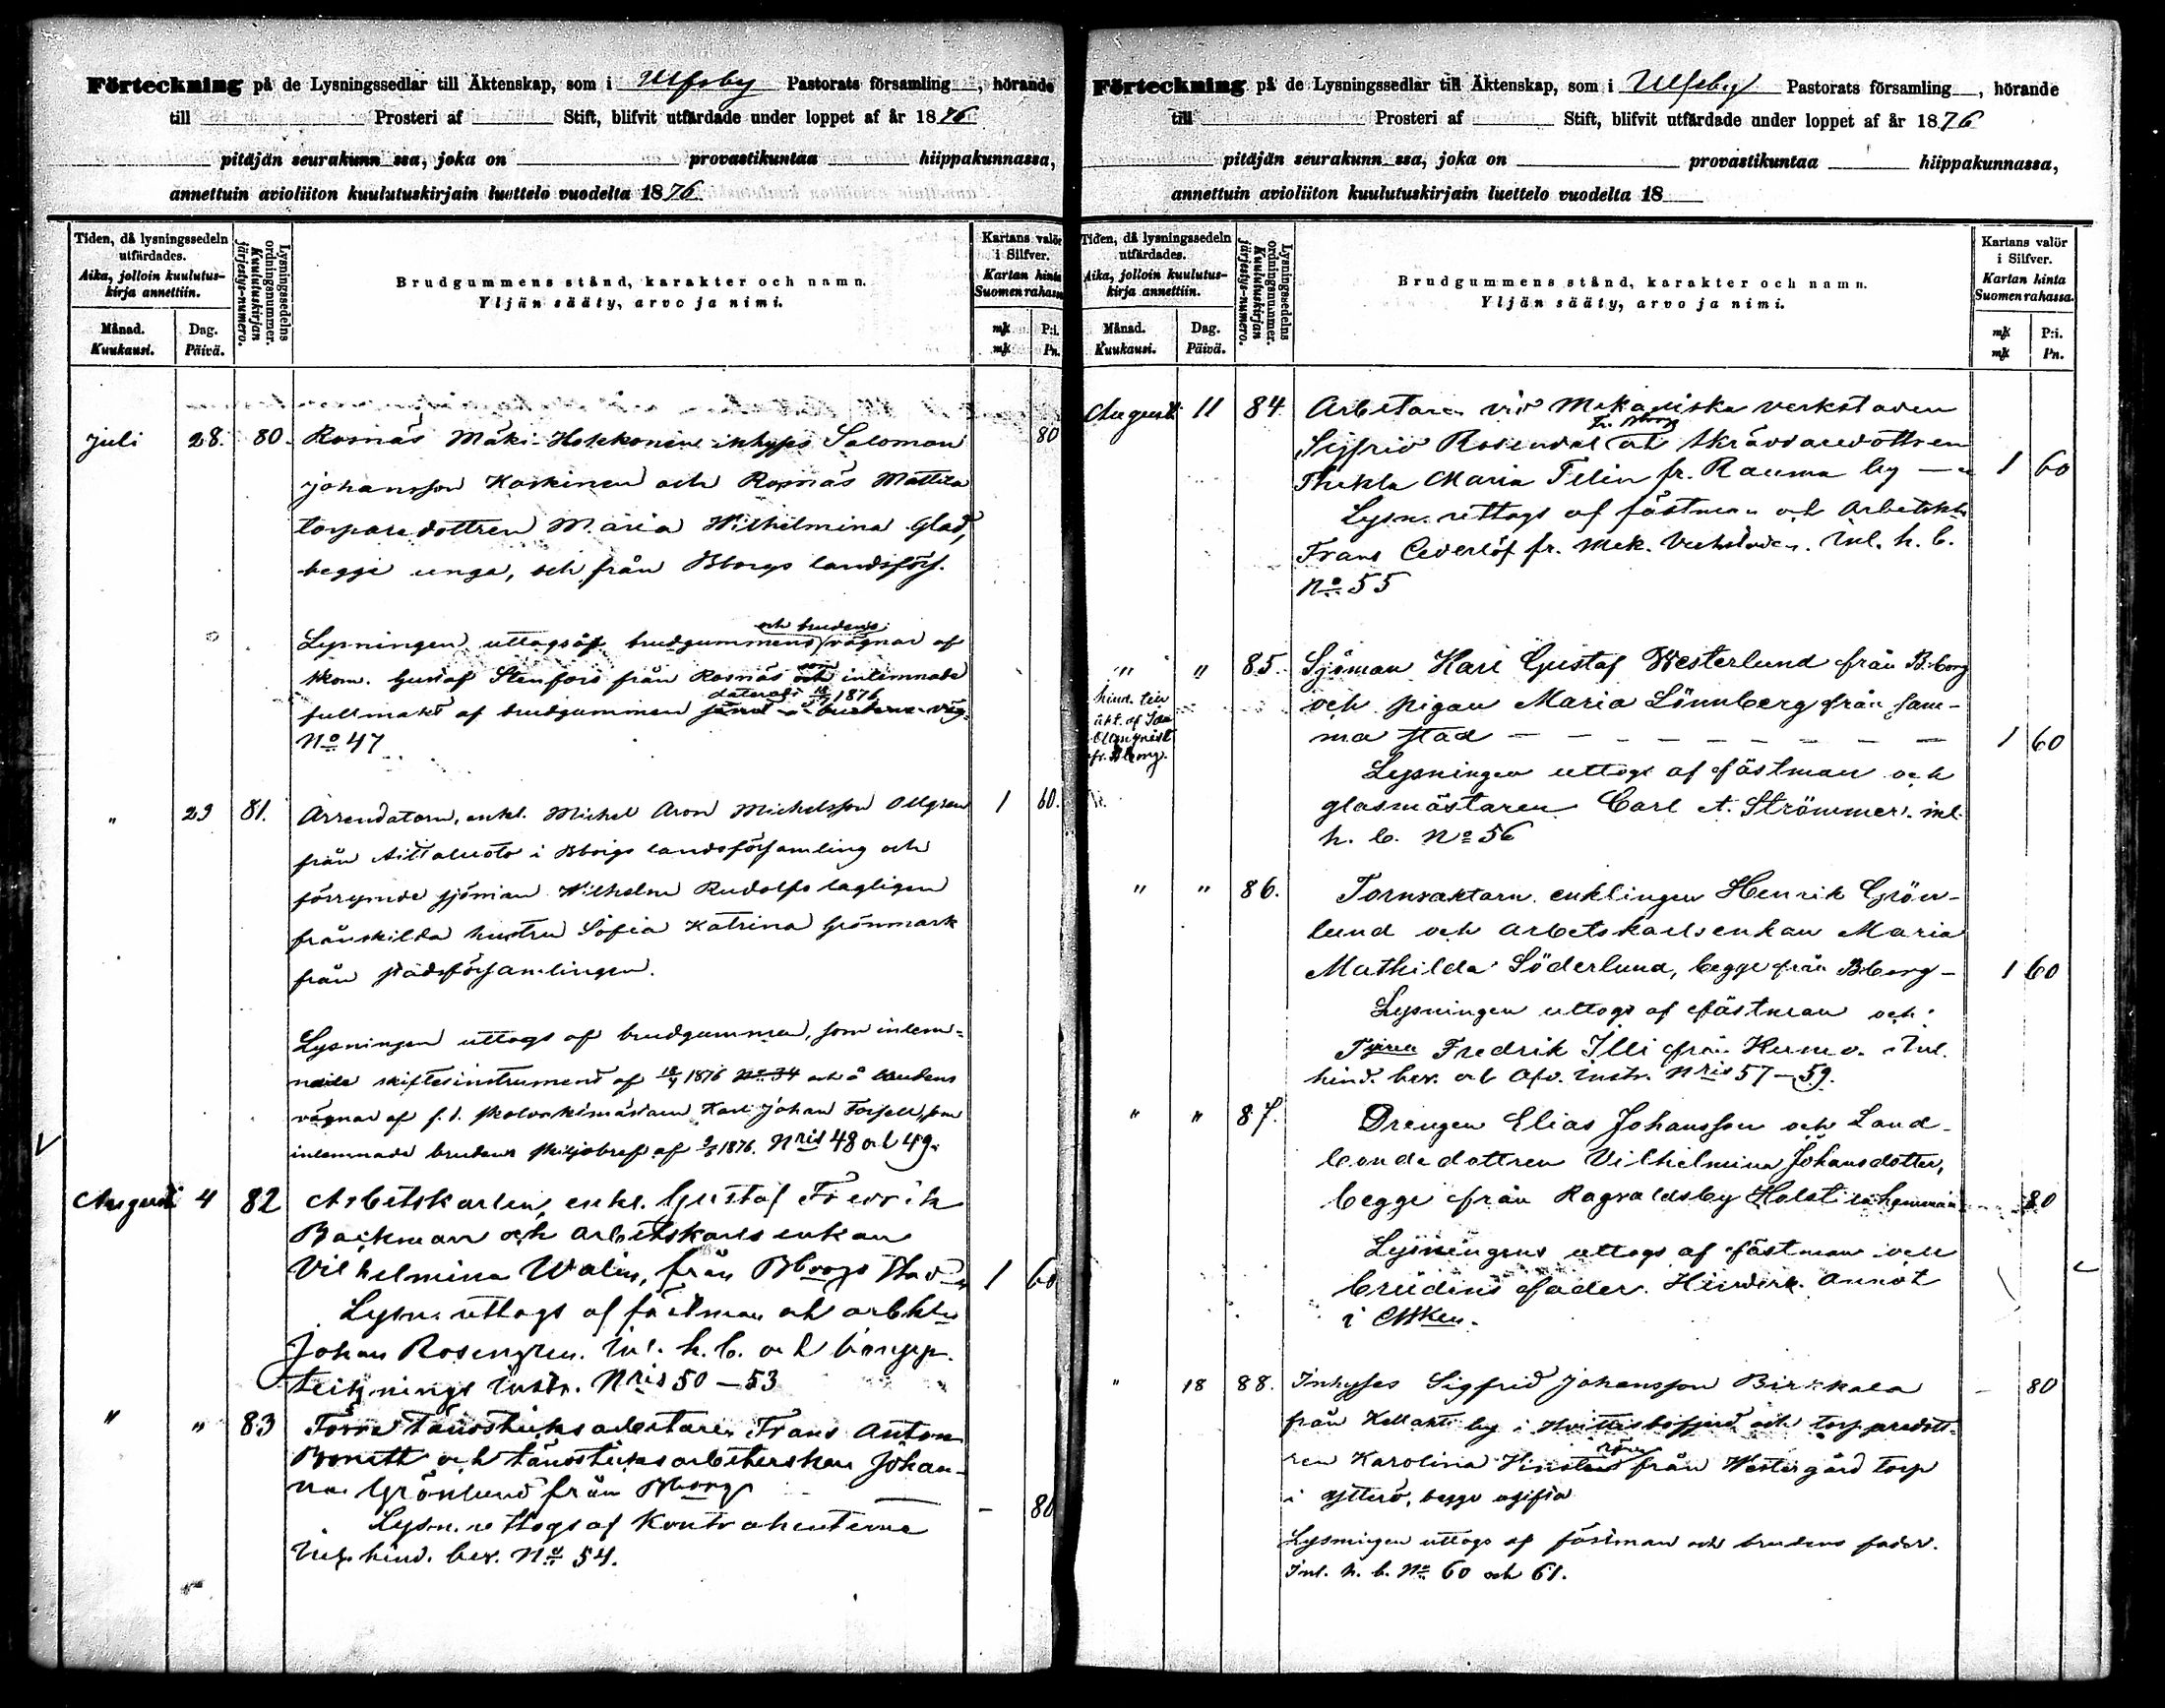 Förteckning på de Lysningssedlar till Äktenskap, som i Ulfsby Pastorats församling, hörande
till Prosteri af Stift, blifvit utfärdade under loppet af år 1876
pitäjän seurakunn ssa, joka on provastikuntaa hiippakunnassa,
annettuin avioliiton kuulutuskirjain luettelo vuodelta 1876.
Tiden, då lysningssedeln
utfärdades.
Aika, jolloin kuulutus-
kirja annettiin.
Månad.
Kuukausi.
Dag.
Päivä.
Lysningssedelns
ordningsnummer.
Kuulutuskirjan
järjestys-numero.
Brudgummens stånd, karakter och namn.
Yljän sääty, arvo ja nimi.
Kartans valör
i Silfver.
Kartan hinta
Suomen rahassa
mk P:i.
mk Pn.
Juli 28. 80. Rosnäs Mäki-Hokkonens inhyses Salomon 80
Johansson Koskinen och Rosnäs Mattila
torparedottren Maria Wilhelmina Glad,
begge unga, och från Bborgs landsförs.
och brudens
Lysningen uttogs af brudgummens vägnar af
som
skom. Gustaf Stenfors från Rosnäs och inlemnade
daterad 18/7 1876
fullmakt af brudgummen
No 47
" 29 81. Arrendatorn, enkl. Michel Aron Michelsson Ollgren 1 60.
från Aittaluoto i Bborgs landsförsamling och
förrymde sjöman Wilhelm Rudolfs lagligen
frånskilda hustru Sofia Katrina Grönmark
från stadsförsamlingen.
Lysningen uttogs af brudgummen, som inlem-
nade skiftesinstrument af 1876 No 34 och å brudens
vägnar af f. d. Karl Johan Forsell, som
inlemnade brudens skiljobref af 1876. Nris 48 och 49.
Augusti 4 82 Arbetskarlen, enkl. Gustaf Fredrik
Backman och arbetskarlsenkan
Vilhelmina Walin, från Bborgs stad 1 60
Lysn. uttogs af fästman och arbk
Johan Rosengren. Inl. h. b. och boupp-
teckningsinstr. Nris 50 – 53
" " 83 Förre tändsticksarbetaren Frans Anton
Bonett och tändsticksarbeterskan Johan-
na Grönlund från Bborg – 80
Lysn. uttogs af kontrahenterne
Inl. hind. bev. No 54.
Förteckning på de Lysningssedlar till Äktenskap, som i Ulfsby Pastorats församling, hörande
till Prosteri af Stift, blifvit utfärdade under loppet af år 1876
pitäjän seurakunn ssa, joka on provastikuntaa hiippakunnassa,
annettuin avioliiton kuulutuskirjain luettelo vuodelta 18
Tiden, då lysningssedeln
utfärdades.
Aika, jolloin kuulutus-
kirja annettiin.
Månad.
Kuukausi.
Dag.
Päivä.
Lysningssedelns
ordningsnummer.
Kuulutuskirjan
järjestys-numero.
Brudgummens stånd, karakter och namn.
Yljän sääty, arvo ja nimi.
Kartans valör
i Silfver.
Kartan hinta
Suomen rahassa.
mk P:i.
mk Pn.
Augusti 11 84. Arbetaren vid Mekaniska verkstaden
fr. Bborg
Sigfrid Rosendal och skräddaredottren
Thekla Maria Telin fr. Rauma by — 1 60
Lysn. uttogs af fästman och Arbetsk
Frans Cederlöf fr. Mek. Verkstaden. Inl. h. b.
No 55
" " 85. Sjöman Karl Gustaf Westerlund från Bborg
och pigan Maria Lönnberg från sam-
ma stad – – – – – – – – 1 60
Lysningen uttogs af fästman och
glasmästaren Carl A. Strömmer. inl.
h. b. No 56
" " 86. Tornvaktarn enklingen Henrik Grön-
lund och arbetskarlsenkan Maria
Mathilda Söderlund, begge från Bborg – 1 60
Lysningen uttogs af fästman och
Fredrik Illi från Kumo. Inl.
hind. bev. och Afv. instr. Nris 57 – 59.
" " 87. Drengen Elias Johansson och Land-
bondedottren Vilhelmina Johansdotter,
begge från Ragvaldsby Holsti hemman 80
Lysningens uttogs af fästman och
brudens fader. Hinderl. Annot
i
" 18 88. Inhyses Sigfrid Johansson Birkkala – 80
från Kellahti by i Hvittisbofjerd och torparedott-
ren Karolina från Westergård torp
i Ytterö, begge ogifta
Lysningen uttogs af fästman och brudens fader.
Inl. h. b. No 60 och 61.